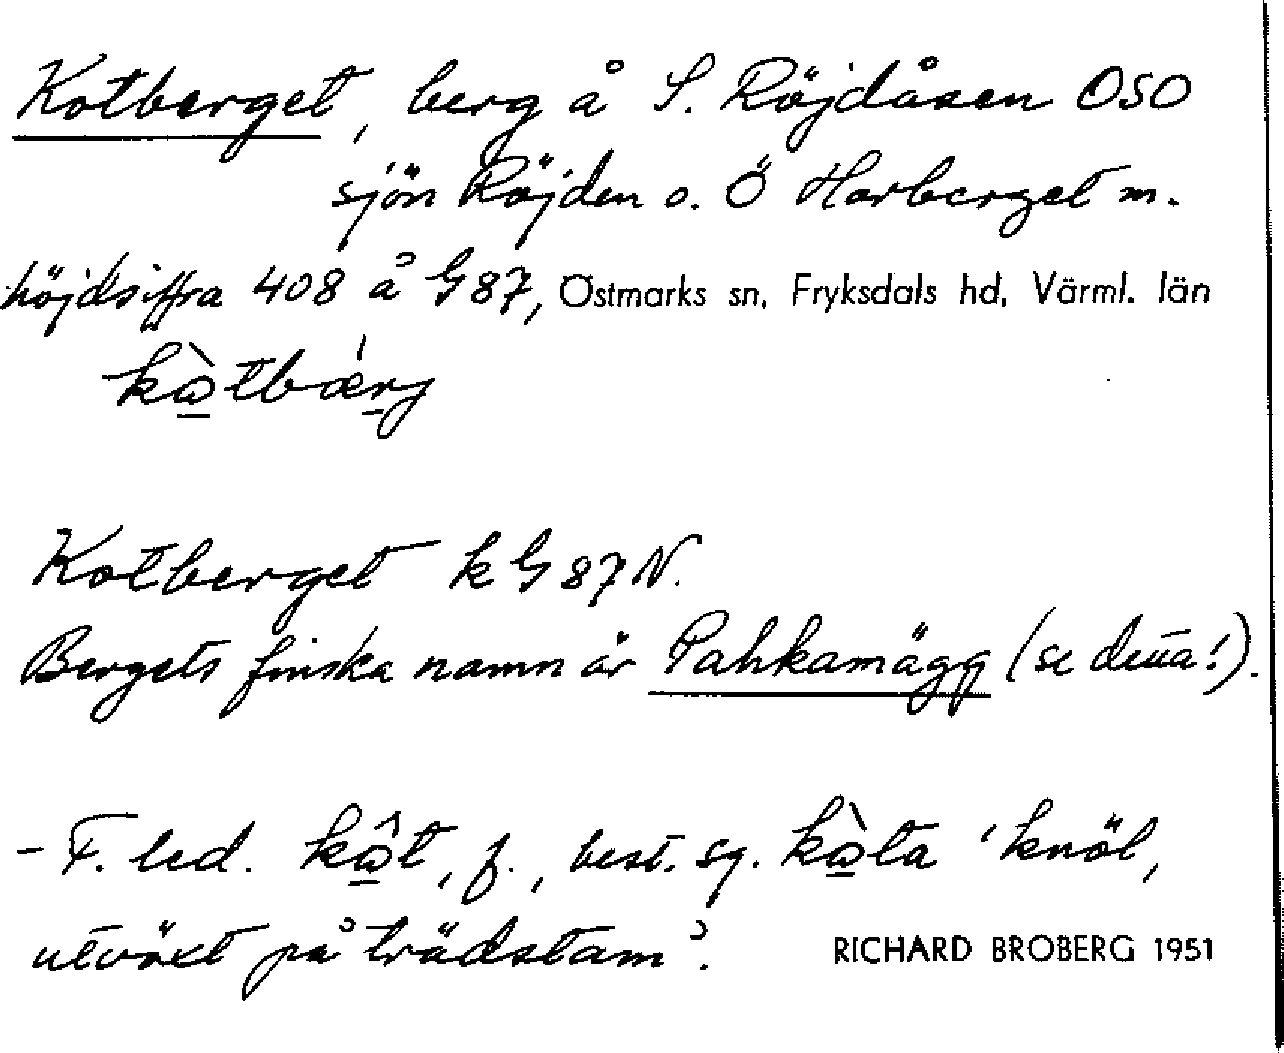 Kotberget, berg å S. Röjdåsen OSO
sjön Röjden o. Ö Harberget m.
höjdsiffra 408 å G 87, Östmarks sn, Fryksdals hd, Värml. län
kɷ̀tbærj
Kotberget k G 87 N.
Bergets finska namn är Pahkamägg (se detta!).
- F. led. kɷ̂t, f., best. sg. kɷ̀ta 'knöl,
utväxt på trädstam'.
RICHARD BROBERG 1951